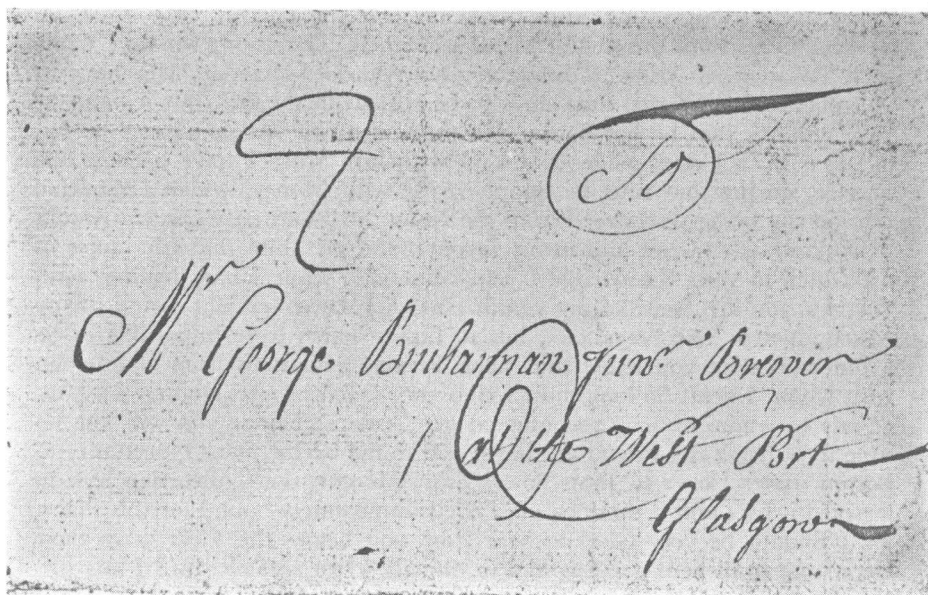 2 To
Mr George Buchannan Junr. Brewer
at the West Port
Glasgow